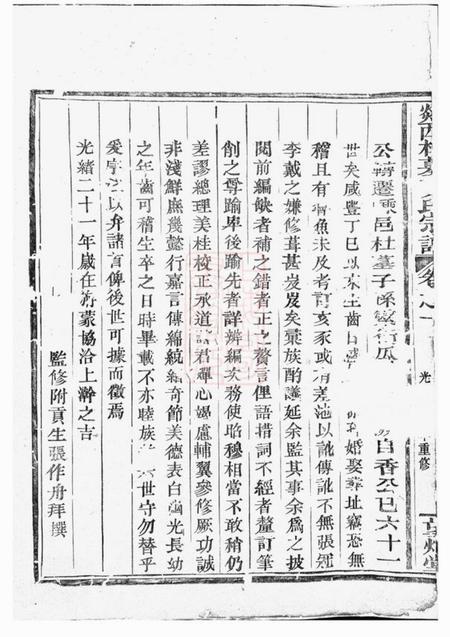 公轉遷 邑杜墓子孫 瓜 自香公已六十一
世矣咸豐丁巳以來生齒日 婚娶葬址竊恐無
稽且有 魚未及考訂亥豕或有差池以訛傳訛不無張冠
李戴之嫌修葺甚岌岌矣蒙族酌議延余監其事余為之披
閱前編缺者補之錯者正之贅言俚語措詞不經者釐訂筆
削之尊踰卑後踰先者詳辨編次務使昭穆相當不敢稍仍
差謬總理美桂校正承道諸君殫心竭慮輔翼參修厥功誠
非淺鮮庶幾懿行嘉言傳綿統緒奇節美德表白幽光長幼
之年齒可稽生卒之日時畢載不亦睦族 世守勿替乎
爰序 以弁諸首俾後世可據而徵焉
光緒二十一年歲在旃蒙協洽上澣之吉
監修附貢生張作舟拜撰
西杜墓 氏宗譜
卷之
光
重修